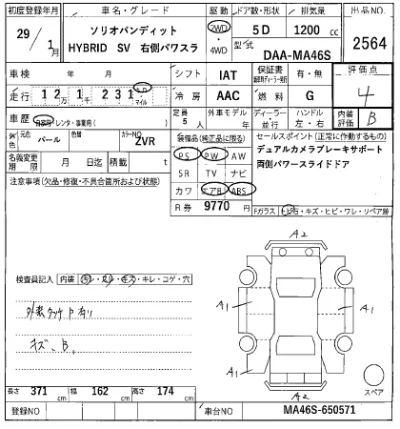 初度登録年月 車名・グレード 駆動 ドア数・形状 排気量 出品NO.
29/1月 ソリオバンディット HYBRID SV 右側パワスラ 2WD・4WD 5D 1200cc 2564
型式 DAA-MA46S
車検 年 月 シフト IAT 保証書 有・無 評価点 4
走行 12万1千231 km マイル 冷房 AAC 燃料 G
車歴 自家用・レンタ・事業用( ) 定員 5人 外車モデル 年 ディーラー・並行 ハンドル 左・右 内装評価 B
色 元色 パール 色替 カラーNO ZVR 装備品(純正品に限る) セールスポイント(正常に作動するもの)
PS PW AW デュアルカメラブレーキサポート
名義変更期限 月 日迄 積載 t SR TV ナビ 両側パワースライドドア
注意事項(欠品・修復・不具合箇所および状態) カワ エアB ABS
R券 9770円 Fガラス トビ石・キズ・ヒビ・ワレ・リペア跡
A2
検査員記入 内装 ヨゴレ・スレ・キズ・キレ・コゲ・穴
A1 A1 A1
外装タッチP有り
キズ、B。
A2 スペア
長さ 371cm 幅 162cm 高さ 174cm
登録NO 車台NO MA46S-650571